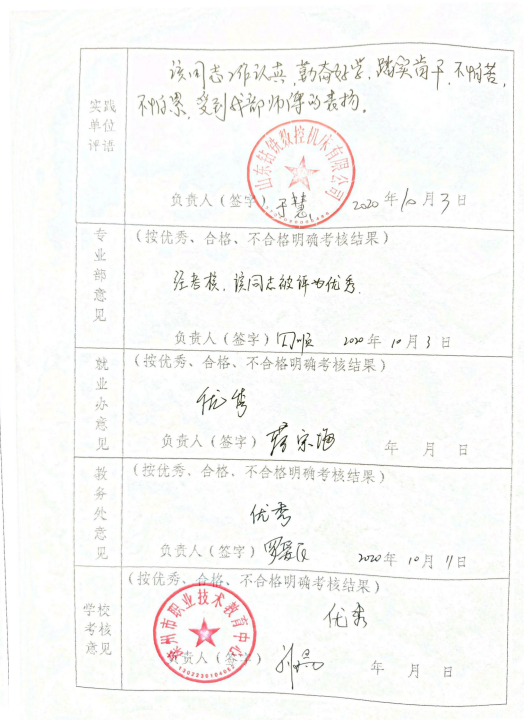 该同志工作认真,勤奋好学,踏实肯干,不怕苦,
不怕累,受到我部师傅的表扬。
实践
单位
评语
山东钻铣数控机床有限公司
负责人(签字) 于慧 2020年10月3日
专业部意见
(按优秀、合格、不合格明确考核结果)
经考核,该同志被评为优秀.
负责人(签字) 2020年10月3日
就业办意见
(按优秀、合格、不合格明确考核结果)
优秀
负责人(签字) 年 月 日
教务处意见
(按优秀、合格、不合格明确考核结果)
优秀
负责人(签字) 2020年10月11日
学校
考核
意见
(按优秀、合格、不合格明确考核结果)
优秀
州市职业技术教育中心
负责人(签字) 年 月 日